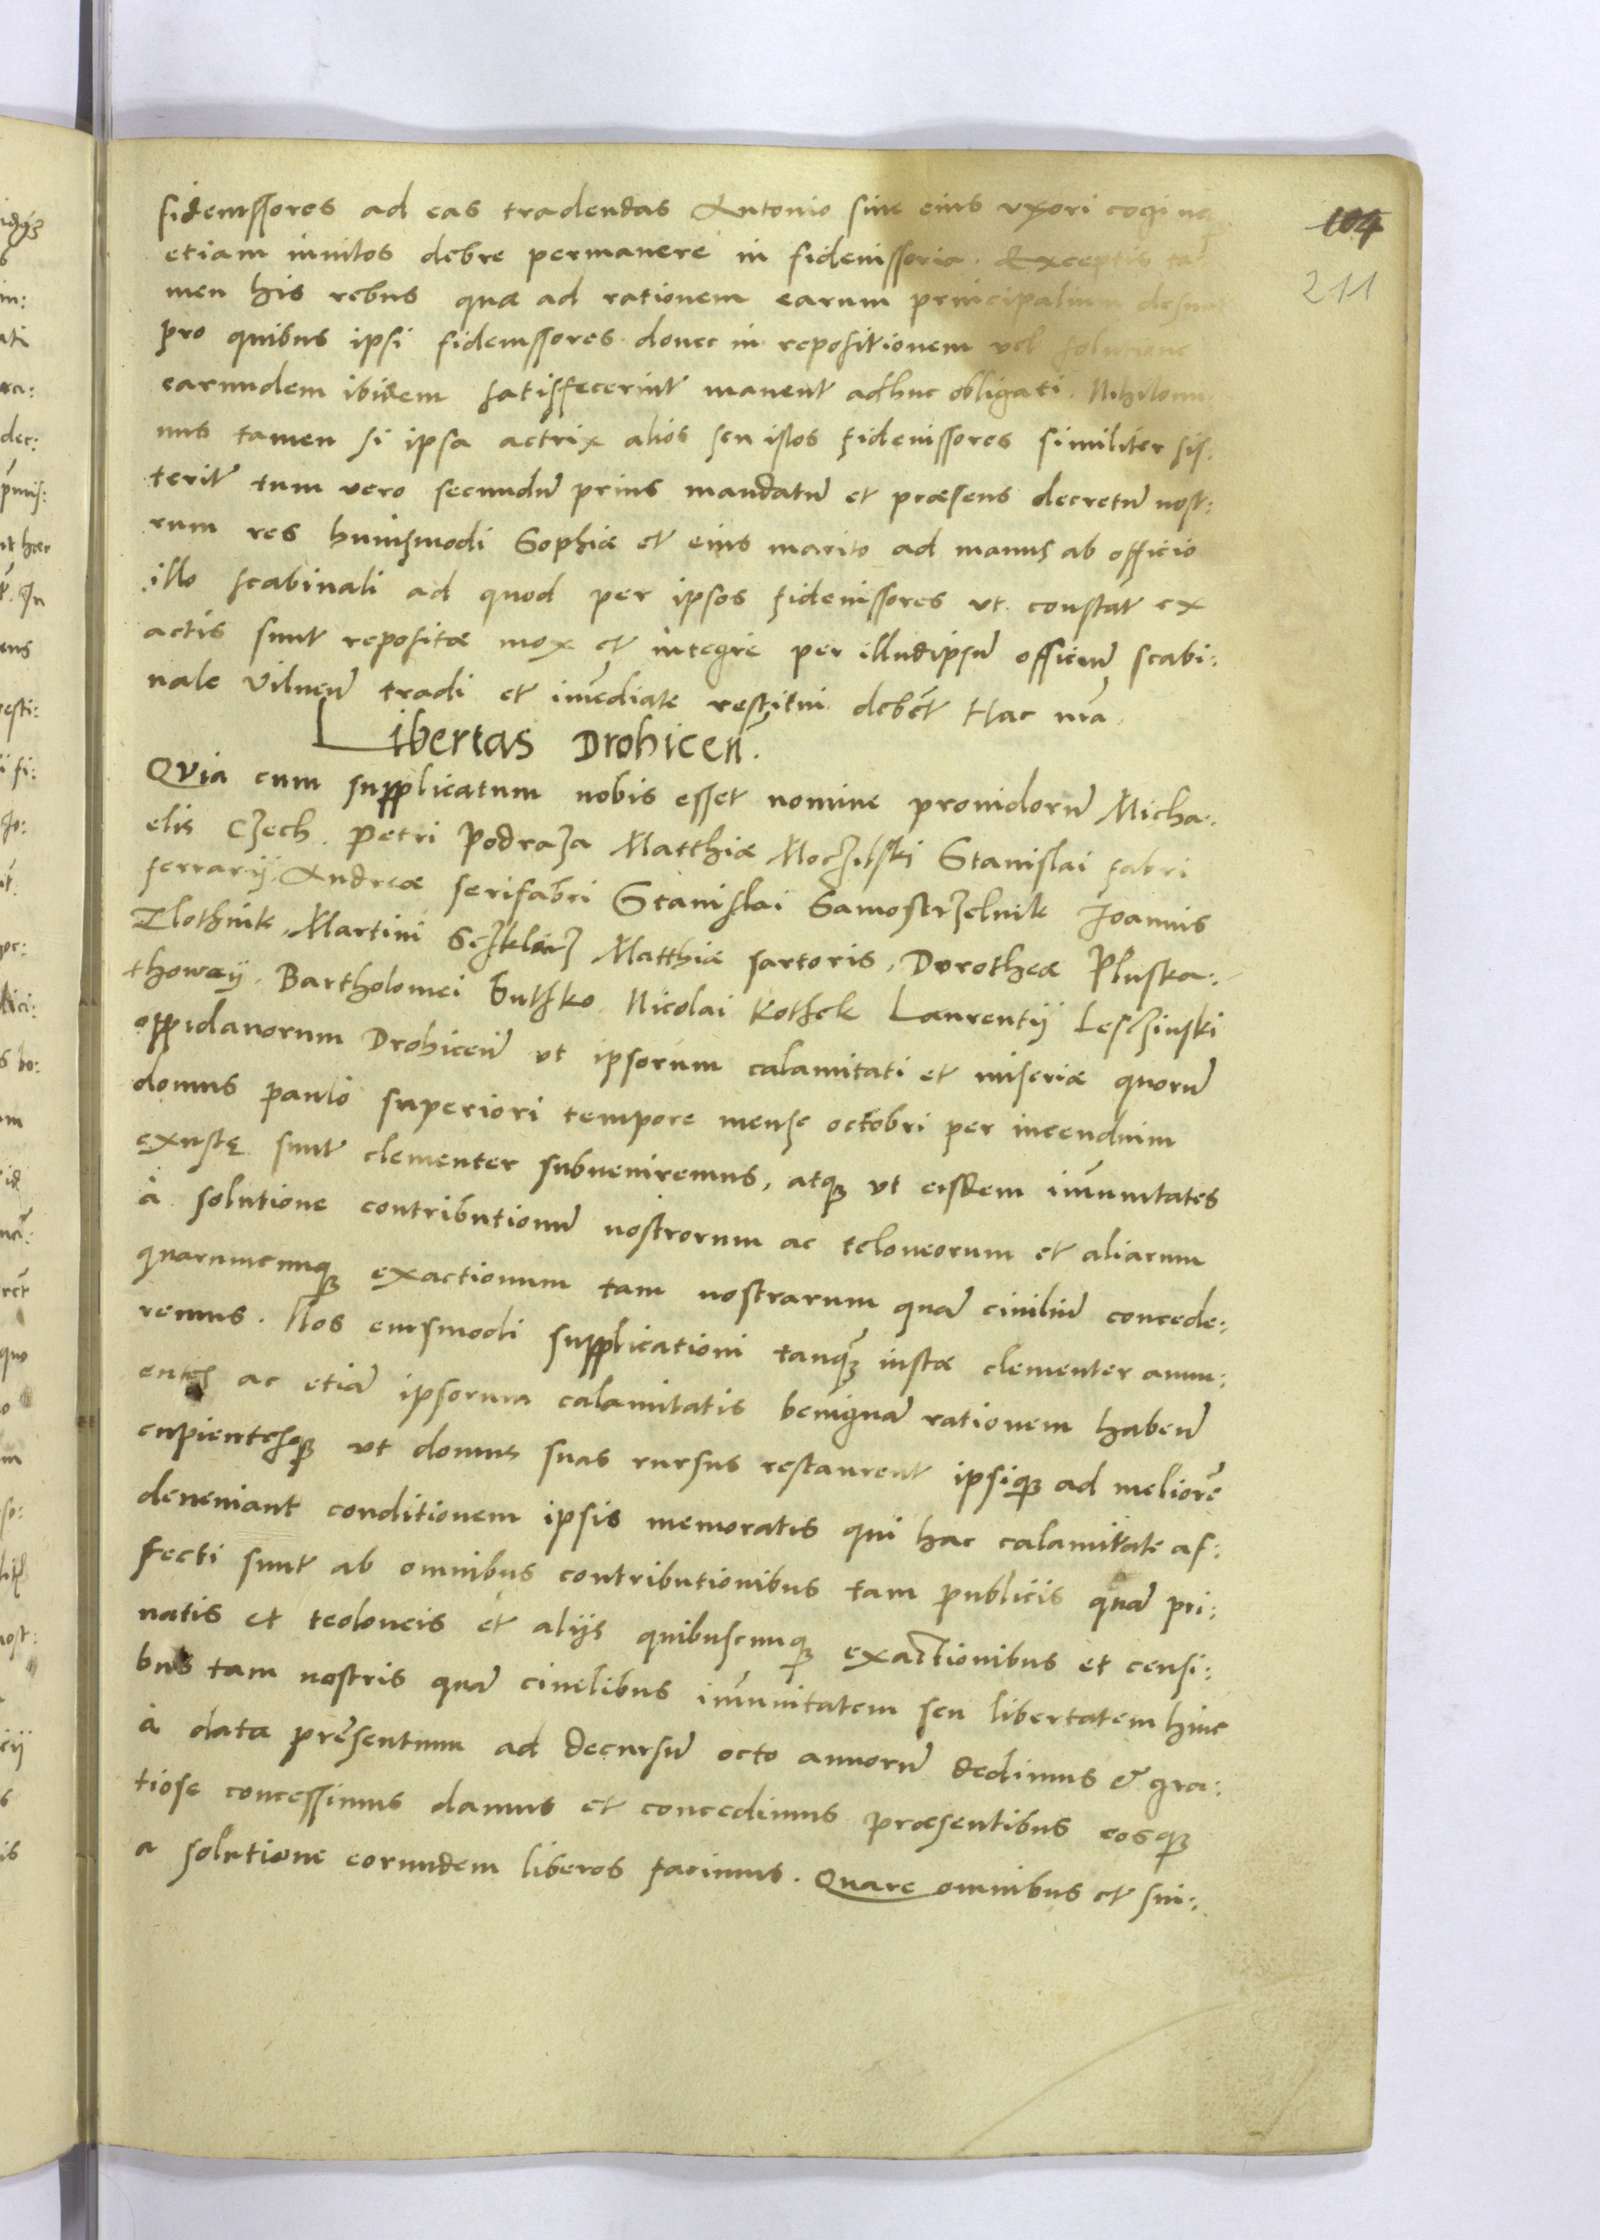 104
211
fideiussores ad eas tradendas Antonio siue eius uxori cogi
etiam inuitos debre permanere in fideiussoria. Exceptis ta
men his rebus quæ ad rationem earum principalium
pro quibus ipsi fideiussores donec in repositionem vel solutione
earundem ibidem satisfecerint manent adhuc obligati. Nihilomi
nus tamen si ipsa actrix alios seu istos fideiussores similiter sis:
terit tum vero secundũ prius mandatũ et præsens decretũ nost:
rum res huiusmodi Sophiæ et eius marito ad manus ab officio
illo scabinali ad quod per ipsos fideiussores ut constat ex
actis sunt repositæ mox et integre per illudipsũ officiũ scabi:
nale Vilneñ tradi et iṁediate restitui debẽt Hac nrã
Libertas Drohiceñ.
Quia cum supplicatum nobis esset nomine prouidorũ Micha:
elis Czech. Petri Podraza Matthiæ Moczilski Stanislai fabri
ferrarij. Andreæ serifabri Stanislai Samostrzelnik Joannis
Zlothnik, Martini Sczklarz Matthiæ sartoris, Dorotheæ Pluska:
thoway. Bartholomei Suthko Nicolai Kothek Laurentij Lesczinski
oppidanorum Drohiceñ ut ipsorum calamitati et miseriæ quorũ
domus paulo superiori tempore mense octobri per incendium
exustę sunt clementer subueniremus, atq; ut eisdem iṁunitates
à solutione contributionũ nostrorum ac teloneorum et aliarum
quarumcunq; exactionum tam nostrarum quã ciuiliũ concede:
remus. Nos eiusmodi supplicationi tanq̃ iustæ clementer annu:
entes ac etiã ipsorum calamitatis benignã rationem habeñ
cupientesq; ut domus suas rursus restaurent ipsiq; ad meliorẽ
deueniant conditionem ipsis memoratis qui hac calamitate af:
fecti sunt ab omnibus contributionibus tam publicis quã pri:
uatis et teoloneis et alijs quibuscunq; exactionibus et censi:
bus tam nostris quã ciuilibus iṁunitatem seu libertatem hinc
à data prẽsentium ad decursũ octo annorũ dedimus & gra:
tiose concessimus damus et concedimus præsentibus eosq;
a solutione eorundem liberos facimus. Quare omnibus et sin: